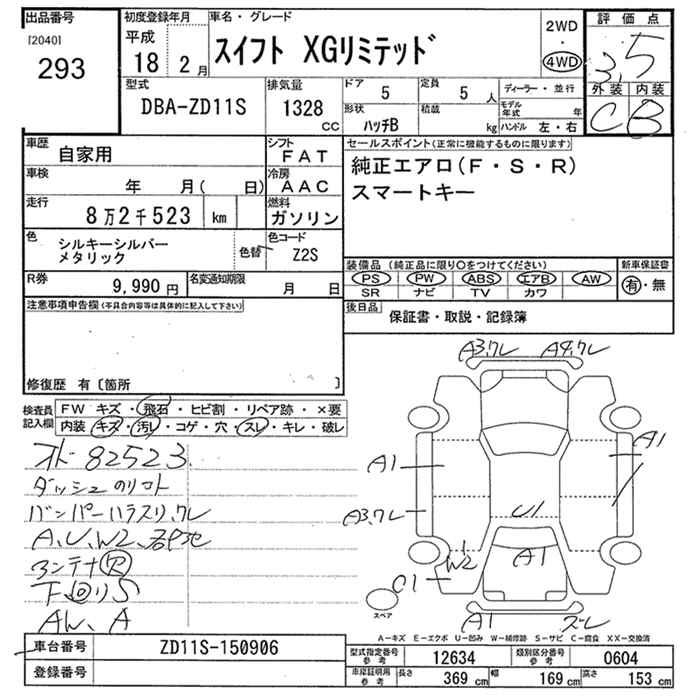 出品番号
[2040]
293
初度登録年月
平成
18 2月
車名・グレード
スイフト XGリミテッド
2WD
・
4WD
評価点
3.5
外装 内装
C B
型式
DBA-ZD11S
排気量
1328
cc
ドア 5
定員 5 人
形状 ハッチB
積載 kg
ディーラー・並行
モデル年式 年
ハンドル 左・右
車歴 自家用
シフト FAT
車検 年 月( 日)
冷房 AAC
走行 8万2千523 km
燃料 ガソリン
色 シルキーシルバー
メタリック
色替
色コード Z2S
R券 9,990円
名変通知期限 月 日
セールスポイント(正常に機能するものに限ります)
純正エアロ(F・S・R)
スマートキー
装備品(純正品に限り○をつけてください)
PS PW ABS エアB AW
SR ナビ TV カワ
新車保証書
有・無
後日品 保証書・取説・記録簿
注意事項申告欄(不具合内容等は具体的に記入して下さい)
修復歴 有〔箇所 〕
検査員記入欄
FW キズ・飛石・ヒビ割・リペア跡・×要
内装 キズ・汚レ・コゲ・穴・スレ・キレ・破レ
オド 82523
ダッシュ
バンパーハラスリ,ワレ
A,U,W2,
アンテナ R
下回りS
AW、A
A3,ワレ A4,ワレ
A1
A1
A3,ワレ
U1
W2
A1
C1
A1
スペア
A-キズ E-エクボ U-凹み W-補修跡 S-サビ C-腐食 XX-交換済
車台番号 ZD11S-150906
登録番号
型式指定番号参考 12634
類別区分番号参考 0604
車庫証明用参考 長さ 369 cm 幅 169 cm 高さ 153 cm